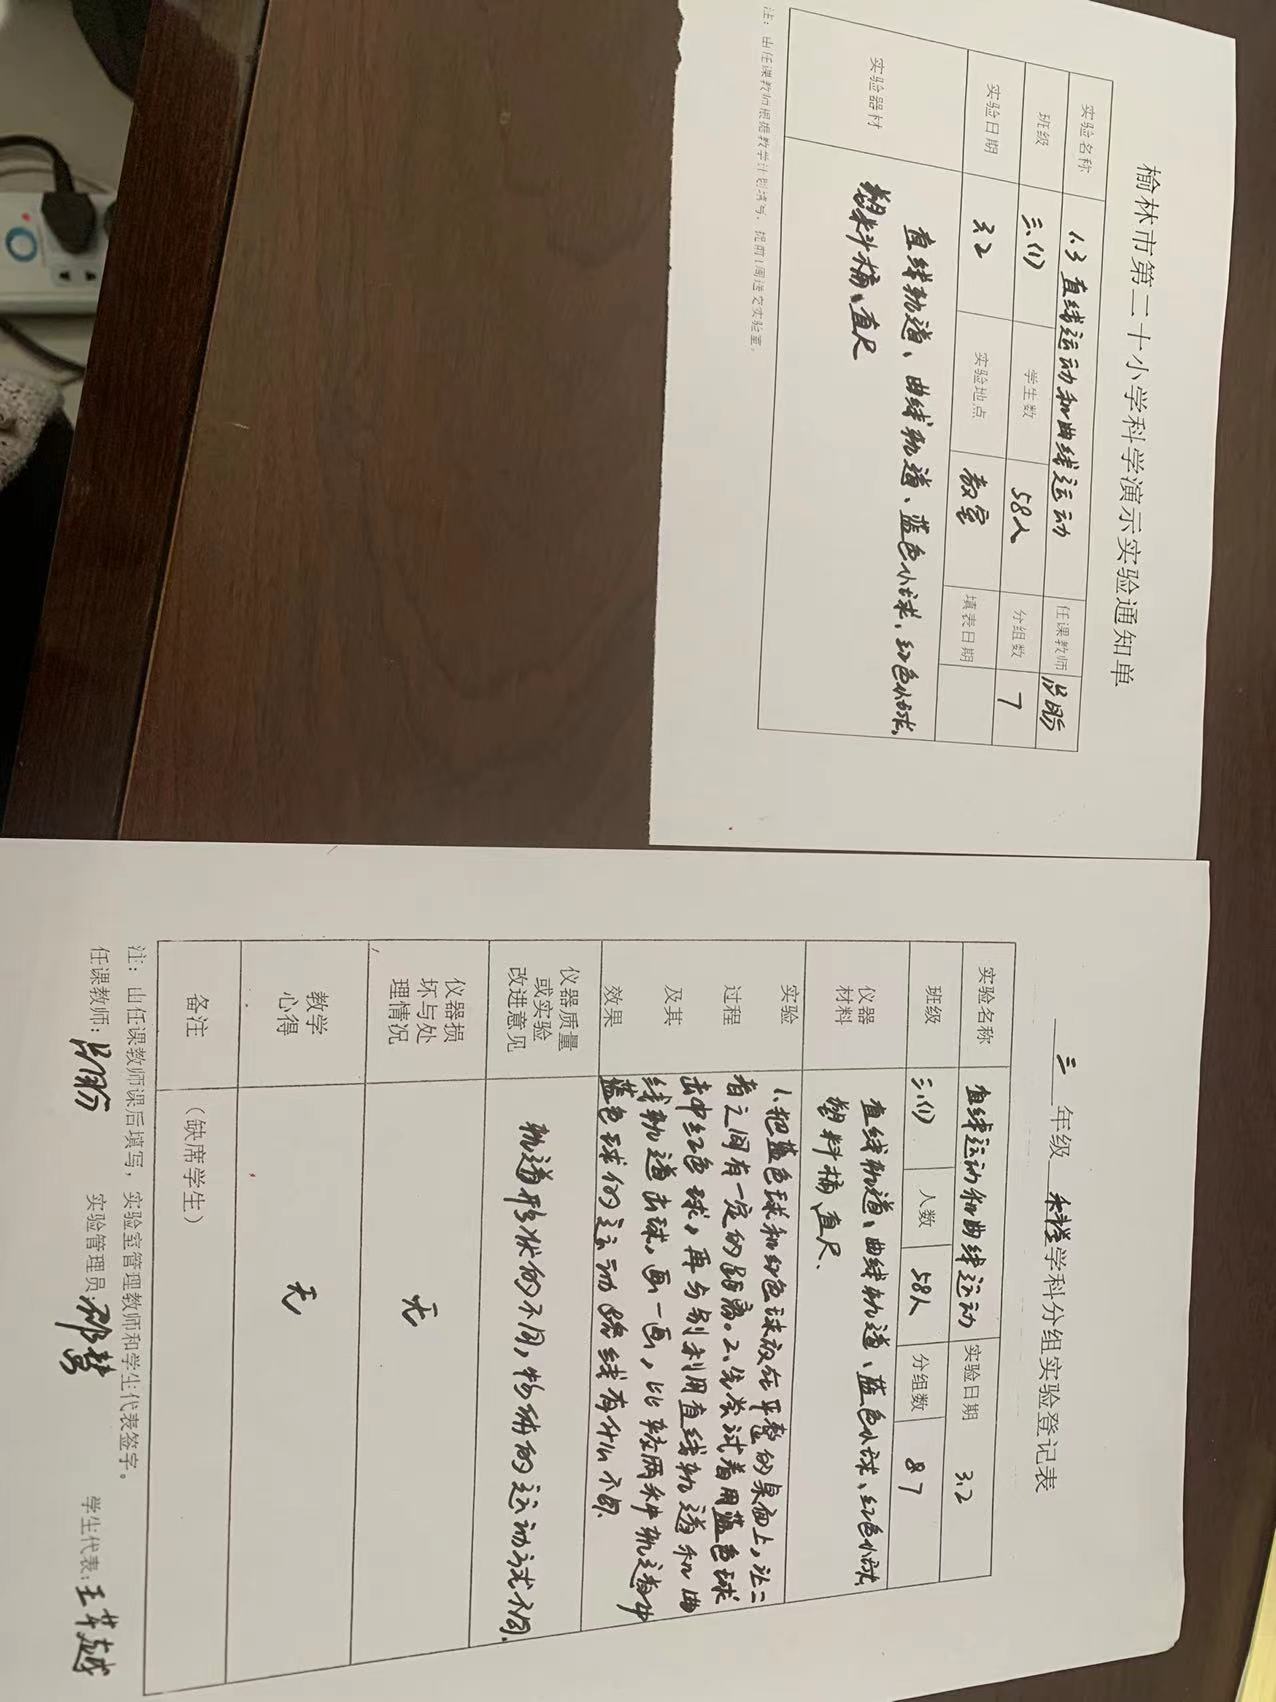 榆林市第二十小学科学演示实验通知单
实验名称 1.3 直线运动和曲线运动 任课教师
班级 三.(1) 学生数 58人 分组数 7
实验日期 3.2 实验地点 教室 填表日期
实验器材 直线轨道、曲线轨道、蓝色小球、红色小球、
塑料桶、直尺
注：由任课教师根据教学计划填写，提前1周送交实验室。
三 年级 科学 学科分组实验登记表
实验名称 直线运动和曲线运动 实验日期 3.2
班级 三.(1) 人数 58人 分组数 7
仪器材料 直线轨道、曲线轨道、蓝色小球、红色小球、
塑料桶、直尺.
实验过程及其效果 1、把蓝色球和红色球放在平整的桌面上，让二
者之间有一定的距离。2、先尝试着用蓝色球
击中红色球，再分别利用直线轨道和曲
线轨道击球，画一画，比较两种轨道中
蓝色球的运动路线有什么不同.
仪器质量或实验改进意见 轨道形状的不同，物体的运动方式不同.
仪器损坏与处理情况 无
教学心得 无
备注 （缺席学生）
注：由任课教师课后填写，实验室管理教师和学生代表签字。
任课教师： 实验管理员： 学生代表：